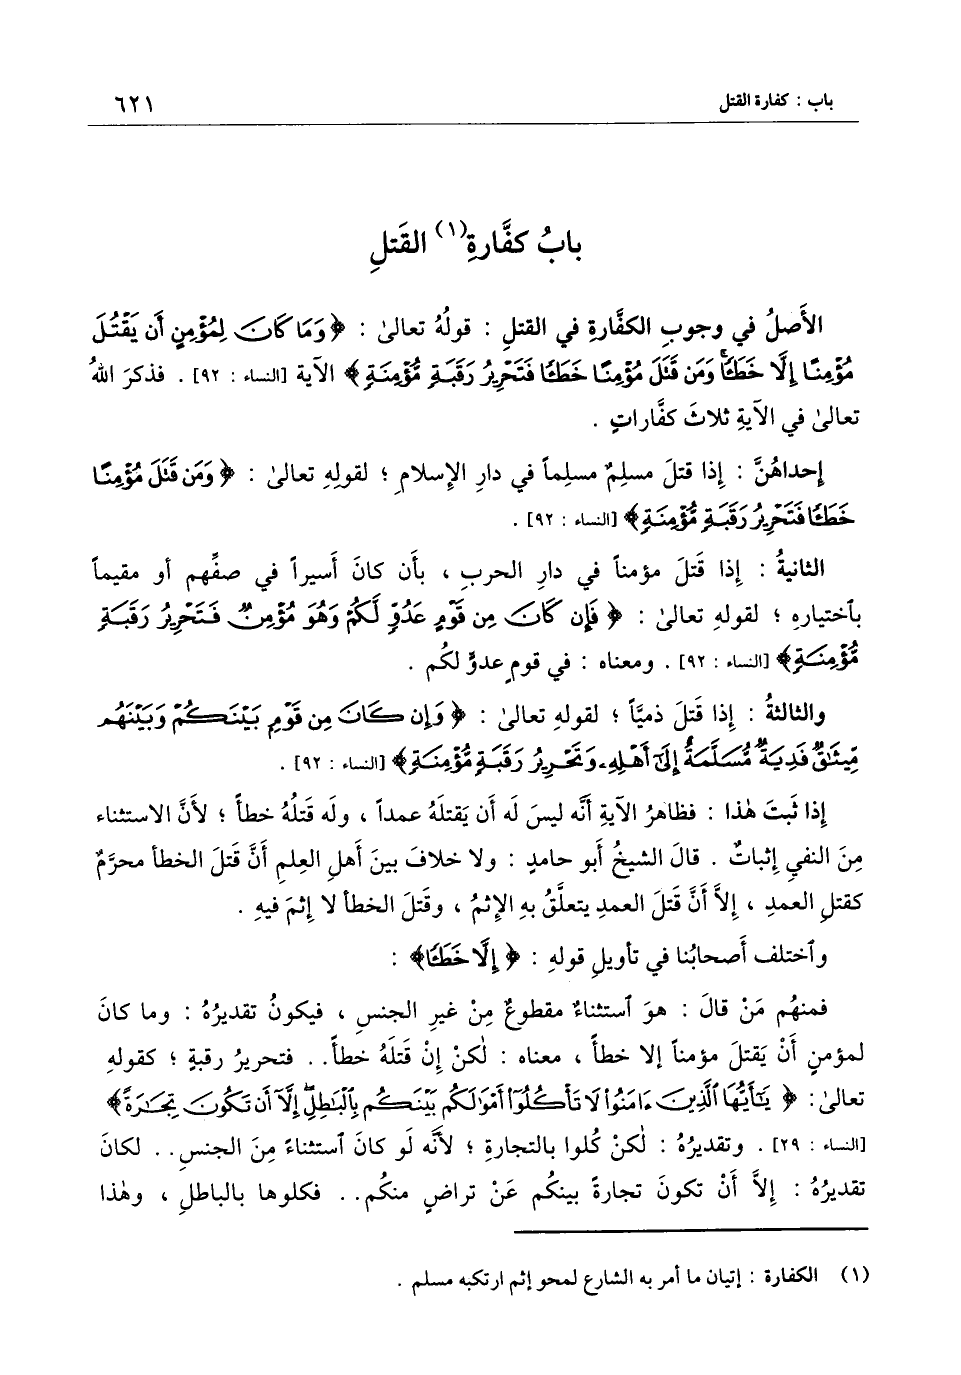 باب : كفارة القتل ٦٢١
بابُ كفَّارةِ(١) القَتلِ
الأَصلُ في وجوبِ الكفَّارةِ في القتلِ : قولُهُ تعالىٰ : ﴿ وَمَا كَانَ لِمُؤْمِنٍ أَن يَقْتُلَ
مُؤْمِنًا إِلَّا خَطَـًٔا ۚ وَمَن قَتَلَ مُؤْمِنًا خَطَـًٔا فَتَحْرِيرُ رَقَبَةٍ مُّؤْمِنَةٍ ﴾ الآية [النساء : ٩٢] . فذكرَ اللهُ
تعالىٰ في الآيةِ ثلاثَ كفَّاراتٍ .
إحداهُنَّ : إذا قتلَ مسلمٌ مسلماً في دارِ الإسلامِ ؛ لقولِهِ تعالىٰ : ﴿ وَمَن قَتَلَ مُؤْمِنًا
خَطَـًٔا فَتَحْرِيرُ رَقَبَةٍ مُّؤْمِنَةٍ ﴾ [النساء : ٩٢] .
الثانيةُ : إذا قَتلَ مؤمناً في دارِ الحربِ ، بأَن كانَ أَسيراً في صفِّهم أو مقيماً
بٱختيارهِ ؛ لقولهِ تعالىٰ : ﴿ فَإِن كَانَ مِن قَوْمٍ عَدُوٍّ لَّكُمْ وَهُوَ مُؤْمِنٌ فَتَحْرِيرُ رَقَبَةٍ
مُّؤْمِنَةٍ ﴾ [النساء : ٩٢] . ومعناه : في قومٍ عدوٍّ لكُم .
والثالثةُ : إذا قَتلَ ذميَّاً ؛ لقولهِ تعالىٰ : ﴿ وَإِن كَانَ مِن قَوْمٍ بَيْنَكُمْ وَبَيْنَهُم
مِّيثَـٰقٌ فَدِيَةٌ مُّسَلَّمَةٌ إِلَىٰٓ أَهْلِهِۦ وَتَحْرِيرُ رَقَبَةٍ مُّؤْمِنَةٍ ﴾ [النساء : ٩٢] .
إذا ثَبتَ هٰذا : فظاهرُ الآيةِ أَنَّه ليسَ لَه أَن يَقتلَهُ عمداً ، ولَه قَتلُهُ خطأً ؛ لأَنَّ الاستثناء
مِنَ النفيِ إثباتٌ . قالَ الشيخُ أبو حامدٍ : ولا خلافَ بينَ أهلِ العِلمِ أَنَّ قَتلَ الخطأ محرَّمٌ
كقتلِ العمدِ ، إلاَّ أَنَّ قَتلَ العمدِ يتعلَّقُ بهِ الإثمُ ، وقَتلَ الخطأ لا إثمَ فيهِ .
وٱختلف أَصحابُنا في تأويلِ قولهِ : ﴿ إِلَّا خَطَـًٔا ﴾ :
فمنهُم مَنْ قالَ : هوَ ٱستثناءٌ مقطوعٌ مِنْ غيرِ الجنسِ ، فيكونُ تقديرُهُ : وما كانَ
لمؤمنٍ أَنْ يَقتلَ مؤمناً إلا خطأً ، معناه : لٰكنْ إِنْ قَتلَهُ خطأً.. فتحريرُ رقبةٍ ؛ كقولهِ
تعالىٰ : ﴿ يَـٰٓأَيُّهَا ٱلَّذِينَ ءَامَنُوا۟ لَا تَأْكُلُوٓا۟ أَمْوَٰلَكُم بَيْنَكُم بِٱلْبَـٰطِلِ إِلَّآ أَن تَكُونَ تِجَـٰرَةً ﴾
[النساء : ٢٩] . وتقديرُهُ : لٰكنْ كُلوا بالتجارةِ ؛ لأنَّه لَو كانَ ٱستثناءً مِنَ الجنسِ.. لكانَ
تقديرُهُ : إلاَّ أَنْ تكونَ تجارةً بينكُم عَنْ تراضٍ منكُم.. فكلوها بالباطلِ ، وهٰذا
(١) الكفارة : إتيان ما أمر به الشارع لمحو إثم ارتكبه مسلم .